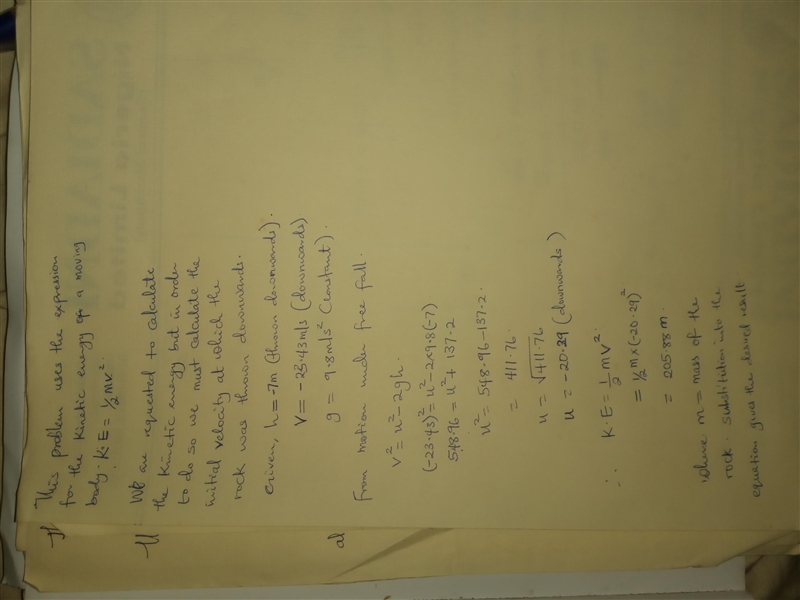 This problem uses the expression
for the kinetic energy of a moving
body. K.E = 1/2 mv².
We are requested to calculate
the kinetic energy but in order
to do so we must calculate the
initial velocity at which the
rock was thrown downwards.
Given, h = -7m (thrown downwards).
V = -23.43m/s (downwards)
g = 9.8m/s² (constant).
a)
From motion under free fall.
v² = u² - 2gh.
(-23.43)² = u² - 2×9.8(-7)
548.96 = u² + 137.2
u² = 548.96 - 137.2.
= 411.76
u = √411.76
u = -20.29 (downwards)
∴ K.E = 1/2 mv².
= 1/2 m × (-20.29)²
= 205.88 m.
where m = mass of the
rock. Substitution into the
equation gives the desired result